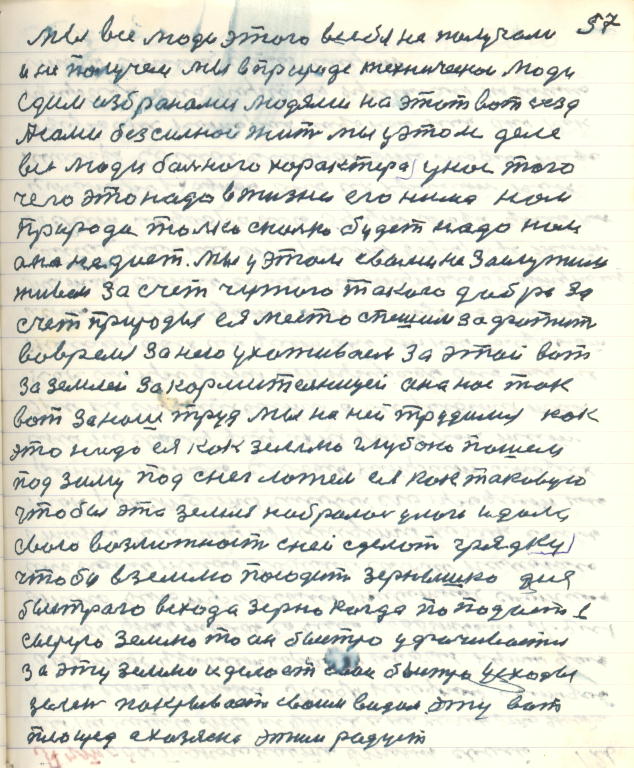 57
Мы все люди этого в себя не получали
и не получем мы в природе технически люди
с дим избранами людями на этот вот сезд
А сами безсилной жит мы у этом деле
все люди болного характера у нас того
чего это надо в жизни его нима нам
природа толко сколко будет надо нам
она надиет. мы у этом сваим не заслужили
живем за счет чужого такого добра за
счет природы ея место спешим задротит
вовремя за нею ухаживаем за этой вот
за землей за кормителницей она нас так
вот за наш труд мы на ней трудимся как
это надо ея как землю глубоко пашем
под зиму под снег ложем ея как таковую
чтобы эта земля набралас улаги и дала
свою возможност с ней сделат грядку
чтобы в землю посадит зернышко для
быстраго всхода зерно когда поподает в
сырую землю то он быстро удрачивается
за эту землю и делает свои быстро усходы
зелен покрывает своим видом эту вот
площед а хазяена этим радует